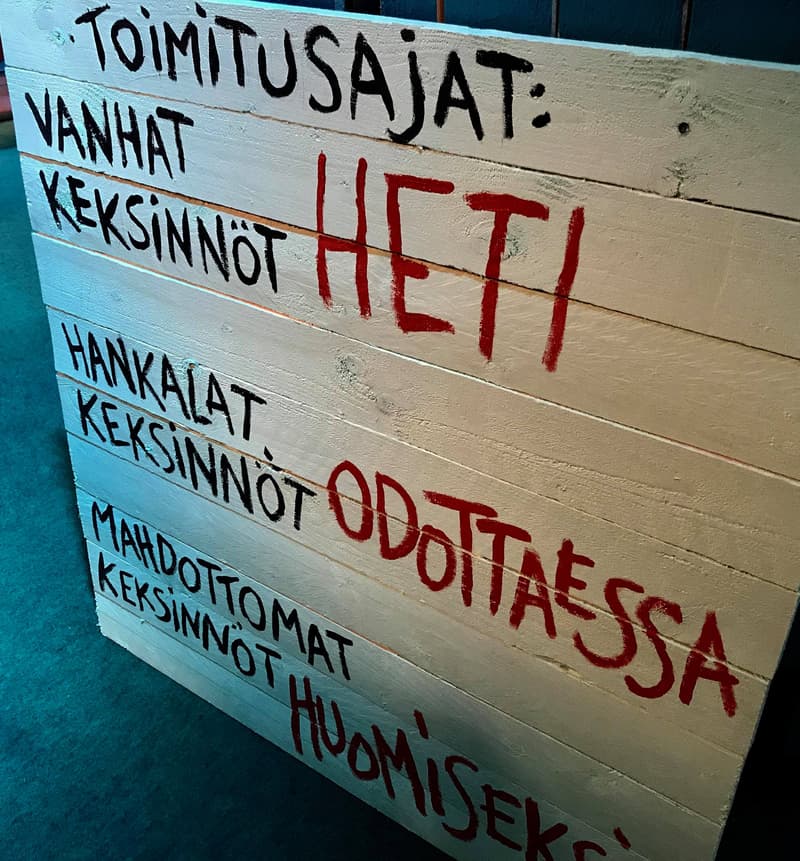 TOIMITUSAJAT:
VANHAT
KEKSINNÖT HETI
HANKALAT
KEKSINNÖT ODOTTAESSA
MAHDOTTOMAT
KEKSINNÖT HUOMISEKSI